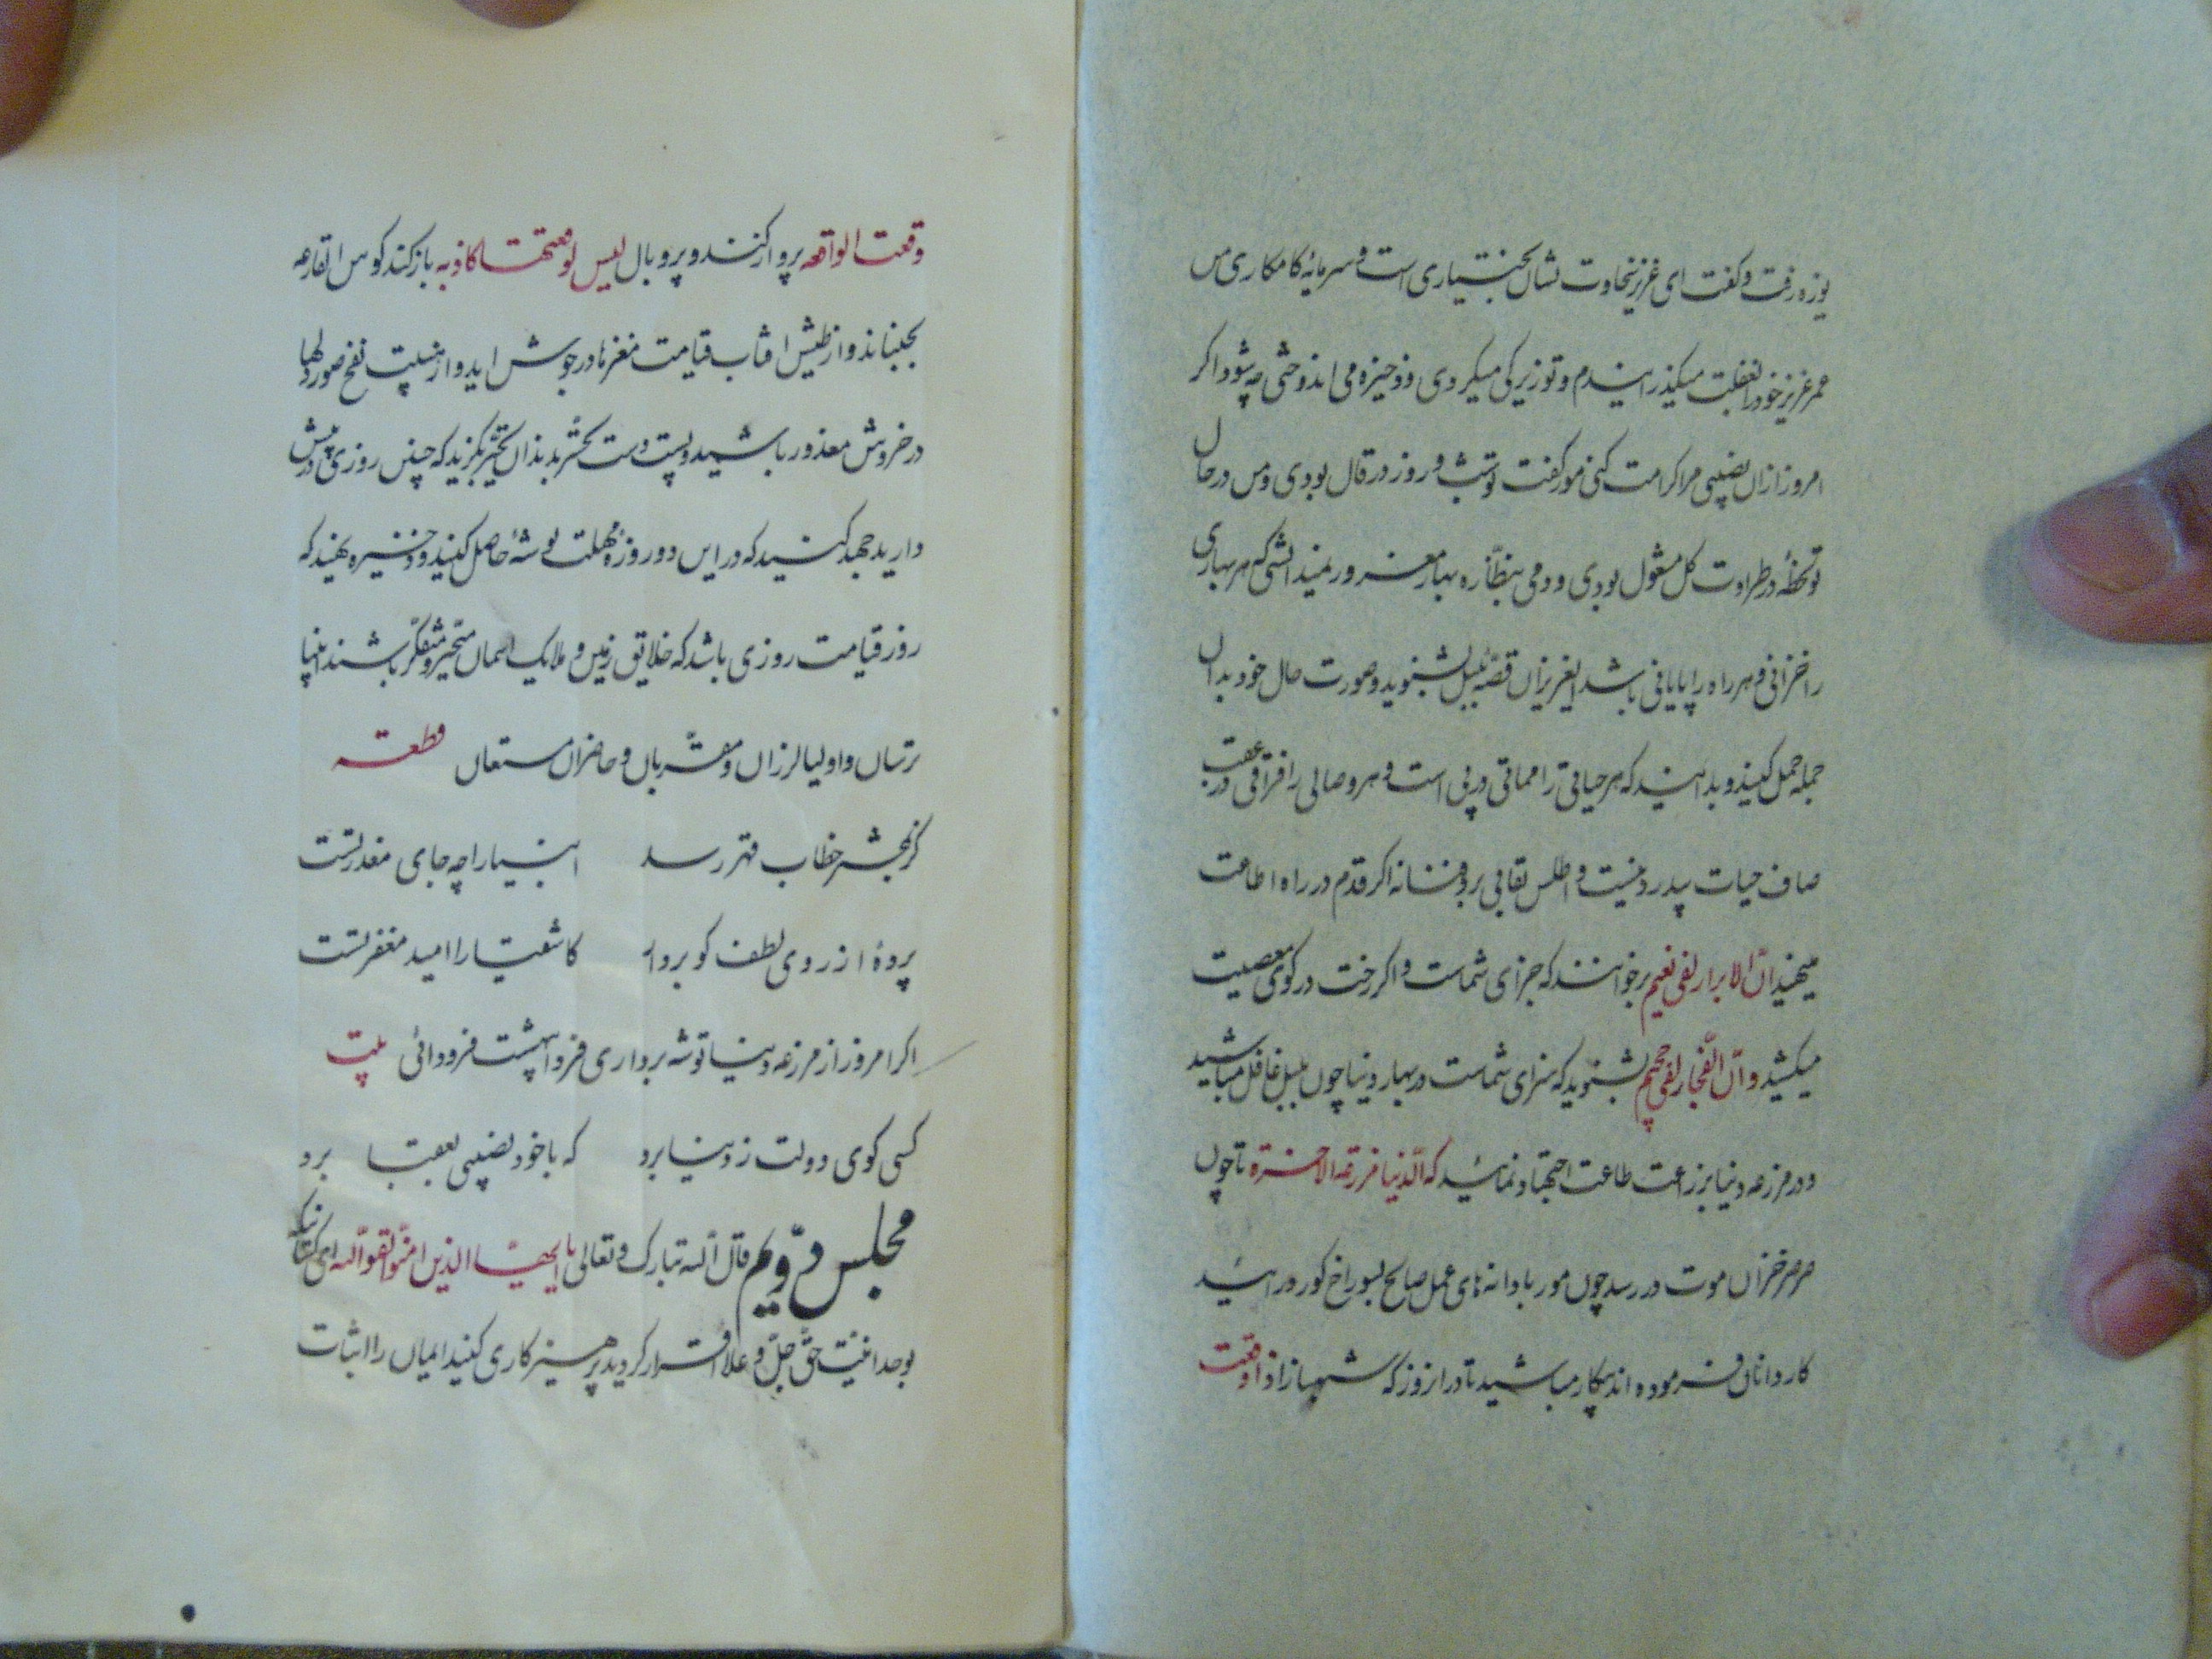 یوزه رفت و کفت ای عزیز سخاوت نشان بختیاری است و سرمایهٔ کامکاری من
عمر عزیز خود را بغفلت میکذرانیدم و تو زیرکی میکردی و ذخیره می اندوختی چه شود اکر
امروز ازان نصیبی مرا کرامت کنی مور کفت تو شب و روز در قال بودی و من در حال
تو لحظهٔ در طراوت کل مشغول بودی و دمی بنظّاره بهار مغرور نمیدانستی که هر بهاری
را خزانی و هر راه را پایانی باشد ایعزیزان قصّه بلبل بشنوید و صورت حال خود بدان
جمله حمل کنید و بدانید که هر حیاتی را مماتی در پی است و هر وصالی را فراقی در عقب
صاف حیات بیدرد نیست و اطلس بقا بی برد فنا نه اکر قدم در راه اطاعت
مینهید انّ الابرار لفی نعیم برخوانند که جزای شماست و اکر رخت در کوی معصیت
میکشید و انّ الفّجار لفی جحیم بشنوید که سزای شماست در بهار دنیا چون بلبل غافل مباشید
و در مزرعه دنیا بزراعت طاعت اجتهاد نمائید که الّدنیا مزرعة الاخرة تا چون
صرصر خزان موت در رسد چون مور با دانه های عمل صالح بسوراخ کور در ائید
کار دانان فرموده اند بیکار مباشید تا در انروز که شهباز اذا وقعت
وقعت الواقعه پرواز کند و پر و بال لیس لوقعتها کاذبه باز کند کوس القارعه
بجنباند و از طپش افتاب قیامت مغزها در جوش اید و از هیبت نفخ صور دلها
در خروش معذور باشید و پشت دست تحسّر بدندان تحیّر بکزید که چنین روزی در پیش
دارید جهد کنید که در این دو روزهٔ مهلت توشهٔ حاصل کنید و ذخیره بنهید که
روز قیامت روزی باشد که خلایق زمین و ملایک اسمان متحیّر و متفکّر باشند انبیا
ترسان و اولیا لرزان و مقرّبان و حاضران مستعان قطعه
کر بمحشر خطاب قهر رسد انبیا را چه جای معذرتست
پردهٔ از روی لطف کو بردار کاشقیا را امید مغفرتست
اکر امروز از مزرعه دنیا توشه برداری فردا ببهشت فرود ائی بیت
کسی کوی دولت ز دنیا برد که با خود نصیبی بعقبا برد
مجلس دوّیم قال اللّه تبارک و تعالی یا ایّها الذین امنوا اتّقوا اللّه ای کسانیکه
بوحدانیّت حقّ جلّ و علا اقرار کردید پرهیز کاری کنید ایمان را اثبات